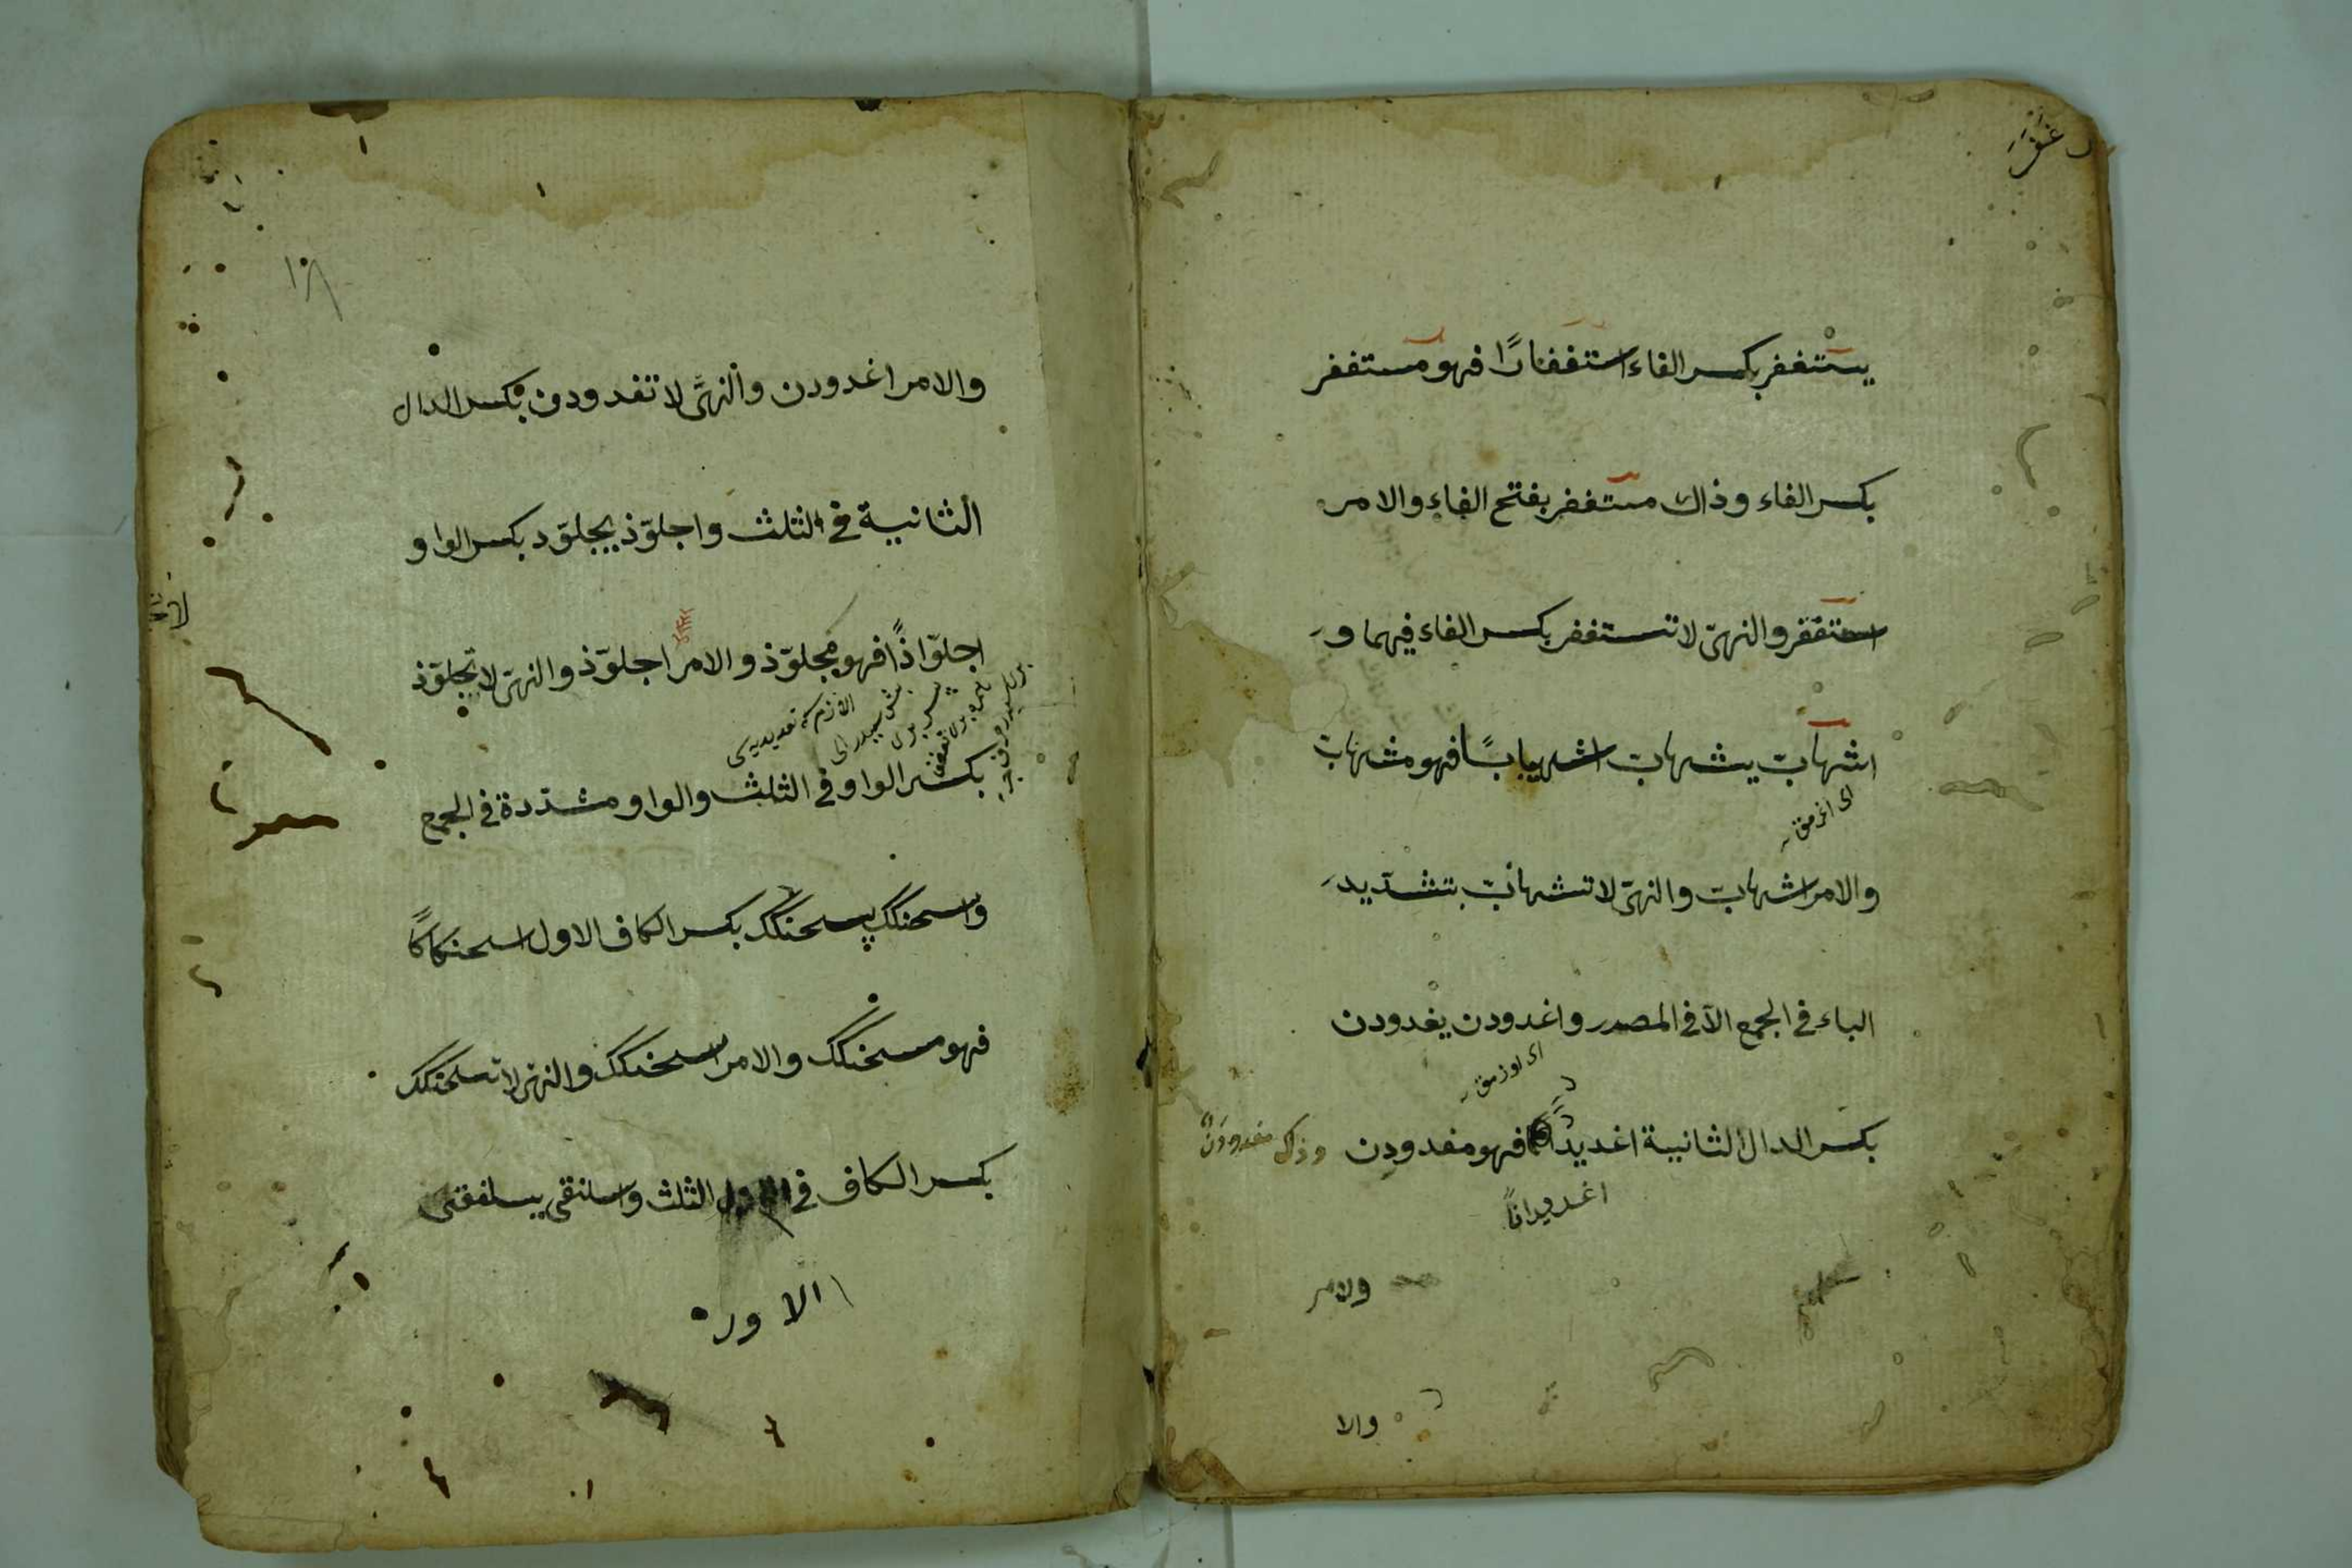 يستغفر بكسر الفاء استغفارًا فهو مستغفر
بكسر الفاء وذاك مستغفر بفتح الفاء والامر
استغفر والنهىّ لا تستغفر بكسر الفاء فيهما و
اشهابّ يشهابّ اشهيبابًا فهو مشهابّ
والامر اشهابّ والنهىّ لا تشهابّ بتشديد
الباء فى الجمع الّا فى المصدر واغدودن يغدودن
بكسر الدال الثانية اغديدا فهو مغدودن وذاك مغدودن
اغديدانًا
والامر
والا
والامر اغدودن والنهىّ لا تغدودن بكسر الدال
الثانية فى الثلث واجلوّذ يجلوّذ بكسر الواو
اجلوّاذًا فهو مجلوّذ والامر اجلوّذ والنهىّ لا تجلوّذ
بكسر الواو فى الثلث والواو مشدّدة فى الجمع
واسحنكك يسحنكك بكسر الكاف الاول اسحنكاكًا
فهو مسحنكك والامر اسحنكك والنهى لا تسحنكك
بكسر الكاف فى الثلث واسلنقى يسلنقى